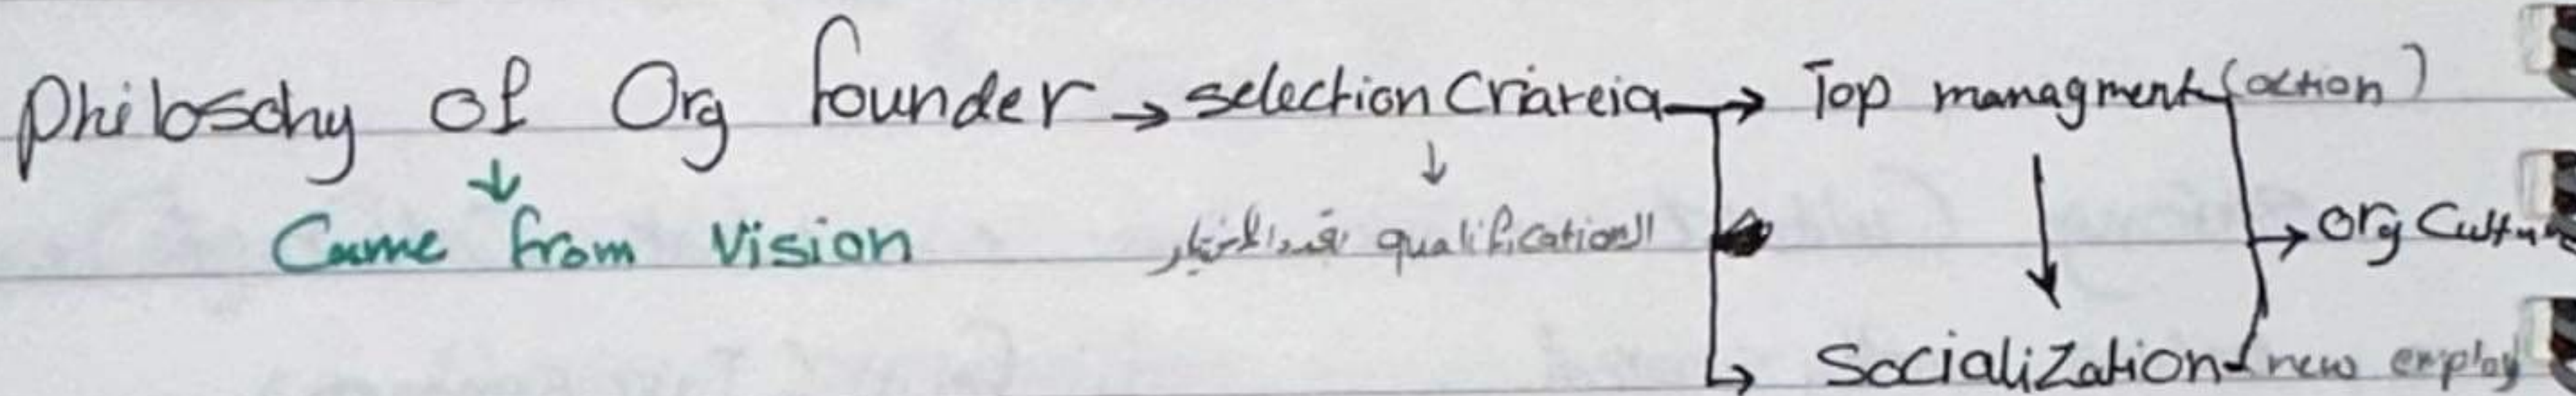 Philoschy of Org founder → selection Criareia → Top managment (action)
↓ Came from Vision
↓ الqualification
→ Org Cultu
→ Socialization (new employ